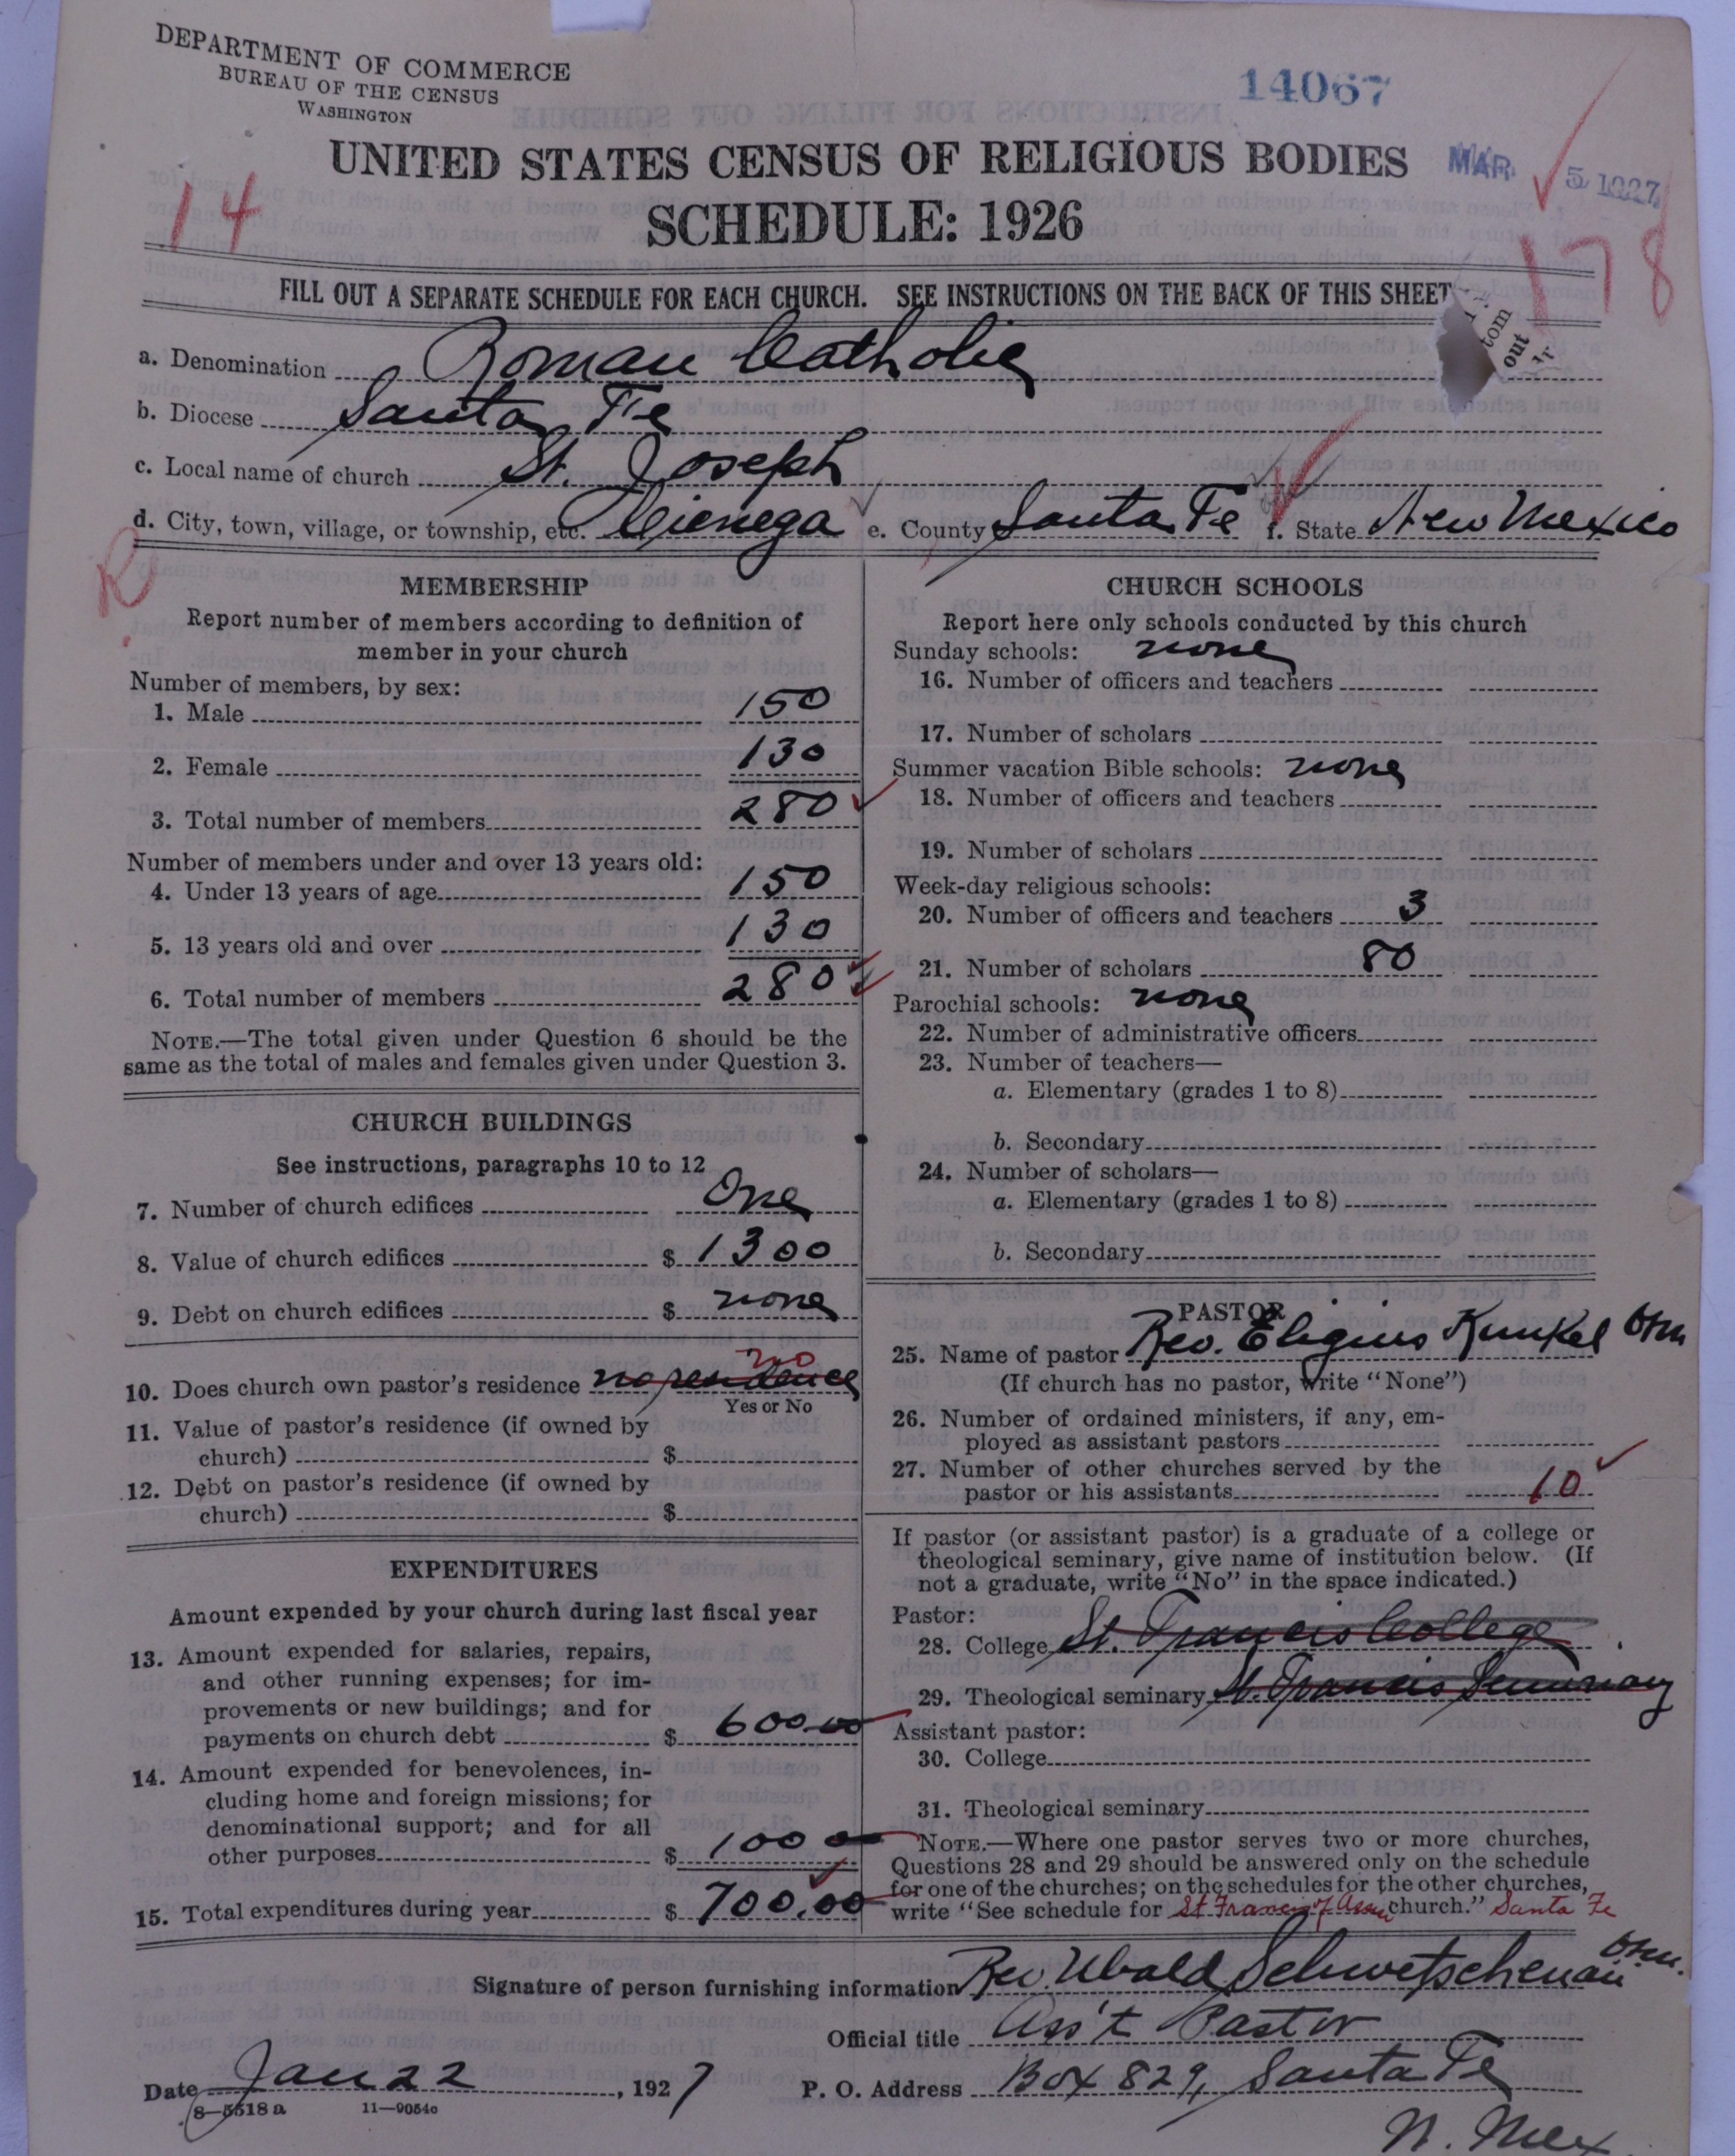 DEPARTMENT OF COMMERCE
BUREAU OF THE CENSUS
WASHINGTON
14067
UNITED STATES CENSUS OF RELIGIOUS BODIES
MAR 5 1927
14
SCHEDULE: 1926
178
FILL OUT A SEPARATE SCHEDULE FOR EACH CHURCH. SEE INSTRUCTIONS ON THE BACK OF THIS SHEET
tom
out
a. Denomination Roman Catholic
b. Diocese Santa Fe
c. Local name of church St. Joseph
d. City, town, village, or township, etc. Cienega e. County Santa Fe f. State New Mexico
R
MEMBERSHIP
Report number of members according to definition of
member in your church
Number of members, by sex:
1. Male 150
2. Female 130
3. Total number of members 280
Number of members under and over 13 years old:
4. Under 13 years of age 150
5. 13 years old and over 130
6. Total number of members 280
NOTE.—The total given under Question 6 should be the
same as the total of males and females given under Question 3.
CHURCH BUILDINGS
See instructions, paragraphs 10 to 12
7. Number of church edifices One
8. Value of church edifices $ 1300
9. Debt on church edifices $ none
no
10. Does church own pastor's residence no residence
Yes or No
11. Value of pastor's residence (if owned by
church) $
12. Debt on pastor's residence (if owned by
church) $
EXPENDITURES
Amount expended by your church during last fiscal year
13. Amount expended for salaries, repairs,
and other running expenses; for im-
provements or new buildings; and for
payments on church debt $ 600.00
14. Amount expended for benevolences, in-
cluding home and foreign missions; for
denominational support; and for all
other purposes $ 100
15. Total expenditures during year $ 700.00
CHURCH SCHOOLS
Report here only schools conducted by this church
Sunday schools: none
16. Number of officers and teachers
17. Number of scholars
Summer vacation Bible schools: none
18. Number of officers and teachers
19. Number of scholars
Week-day religious schools:
20. Number of officers and teachers 3
21. Number of scholars 80
Parochial schools: none
22. Number of administrative officers
23. Number of teachers—
a. Elementary (grades 1 to 8)
b. Secondary
24. Number of scholars—
a. Elementary (grades 1 to 8)
b. Secondary
PASTOR
25. Name of pastor Rev. Eligius Kunkel ofm
(If church has no pastor, write "None")
26. Number of ordained ministers, if any, em-
ployed as assistant pastors
27. Number of other churches served by the
pastor or his assistants 10
If pastor (or assistant pastor) is a graduate of a college or
theological seminary, give name of institution below. (If
not a graduate, write "No" in the space indicated.)
Pastor:
28. College St. Francis College
29. Theological seminary St. Francis Seminary
Assistant pastor:
30. College
31. Theological seminary
NOTE.—Where one pastor serves two or more churches,
Questions 28 and 29 should be answered only on the schedule
for one of the churches; on the schedules for the other churches,
write "See schedule for St Francis of Assisi church." Santa Fe
Signature of person furnishing information Rev. Ubald Schwetschenau ofm.
Official title Ass't Pastor
Date Jan 22, 1927 P. O. Address Box 829, Santa Fe
8—5518a 11—9054c
N. Mex